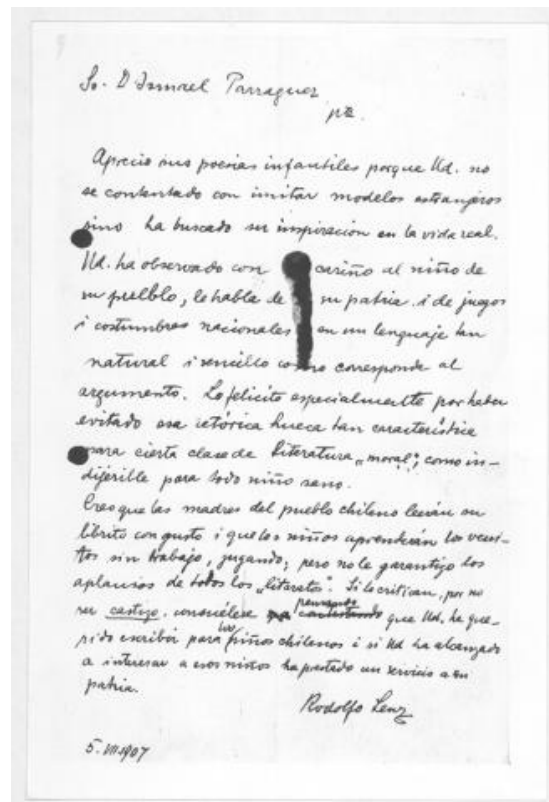 Sr. D Ismael Parraguez
pte.
Aprecio sus poesías infantiles porque Ud. no
se contentado con imitar modelos estranjeros
sino ha buscado su inspiración en la vida real.
Ud. ha observado con cariño al niño de
su pueblo, le habla de su patria i de juegos
i costumbres nacionales en un lenguaje tan
natural i sencillo como corresponde al
argumento. Lo felicito especialmente por haber
evitado esa retórica hueca tan característica
para cierta clase de literatura „moral“, como in-
dijerible para todo niño sano.
Creo que las madres del pueblo chileno leerán su
librito con gusto i que los niños aprenderán los versi-
tos sin trabajo, jugando; pero no le garantizo los
aplausos de todos los „literatos“. Si lo critican, por no
ser castizo, consuélese pensando que Ud. ha que-
rido escribir para los niños chilenos i si Ud ha alcanzado
a interesar a esos niños ha prestado un servicio a su
patria.
Rodolfo Lenz
5.VII.1907